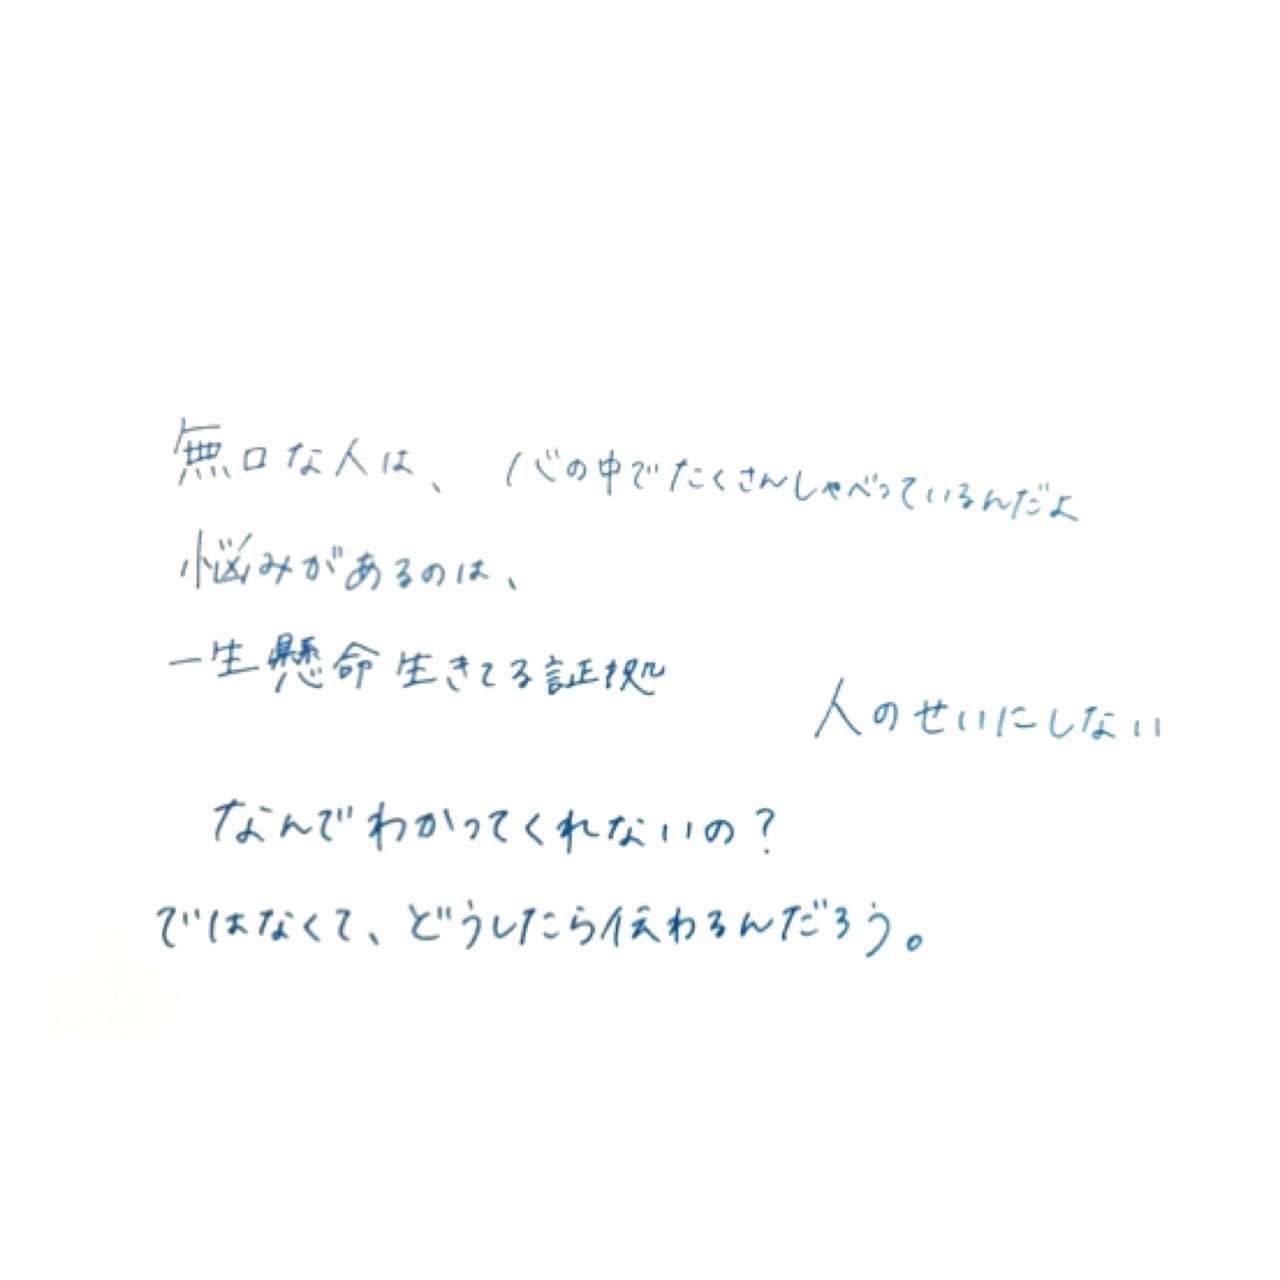 無口な人は、心の中でたくさんしゃべっているんだよ
悩みがあるのは、
一生懸命生きてる証拠
人のせいにしない
なんでわかってくれないの？
ではなくて、どうしたら伝わるんだろう。